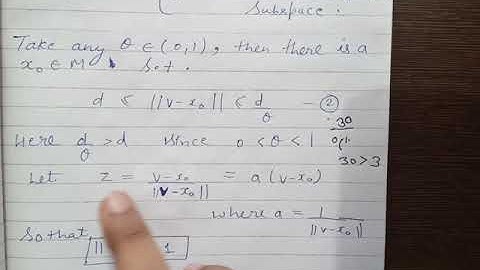 Subspace.
Take any θ ∈ (0,1), then there is a
x₀ ∈ M s.t.
d ≤ ||v-x₀|| ≤ d/θ — ②
Here d/θ > d since 0 < θ < 1
30
30 > 3
Let z = v-x₀/||v-x₀|| = a(v-x₀)
where a = 1/||v-x₀||
So that || 1